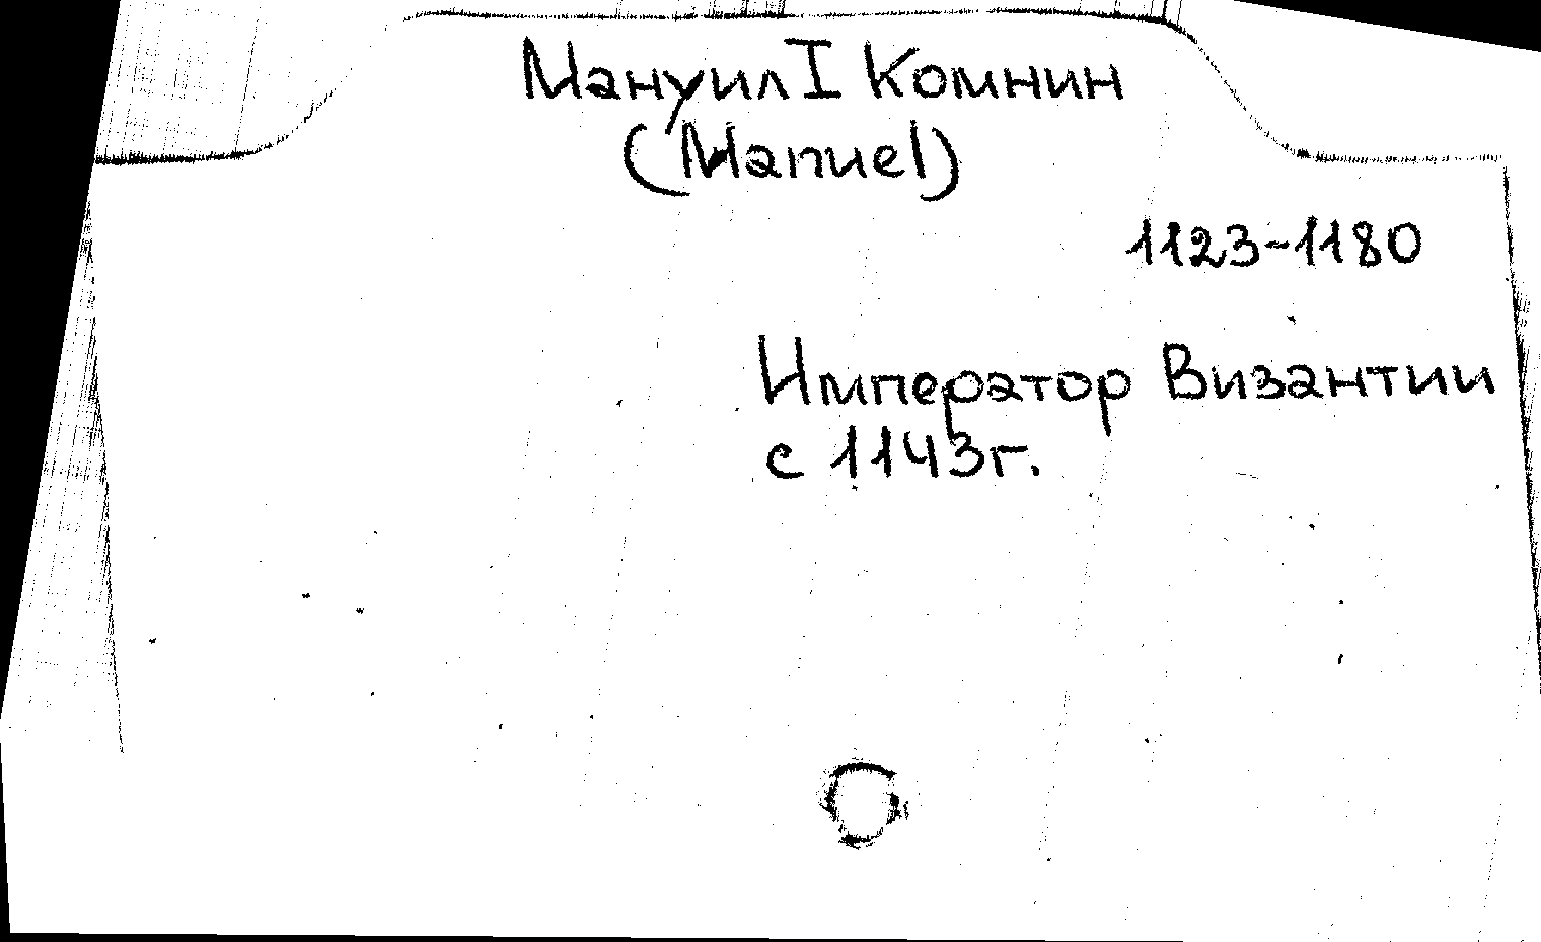 Мануил I Комнин
(Manuel)
1123-1180
Император Византии
с 1143г.